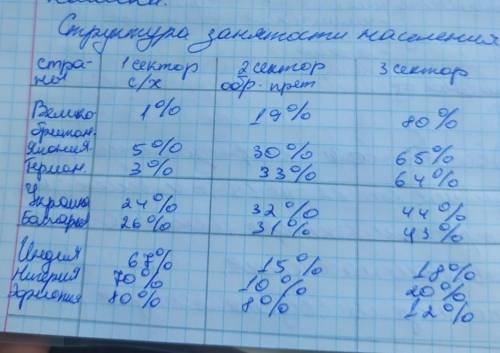 Структура занятости населения
стра- 1 сектор 2 сектор 3 сектор
ны с/х обр. пром
Велико 1% 19% 80%
британ.
Япония 5% 30% 65%
Герман. 3% 33% 64%
Украина 24% 32% 44%
Болгария 26% 31% 43%
Индия 67% 15% 18%
Нигерия 70% 10% 20%
Эфиопия 80% 8% 12%